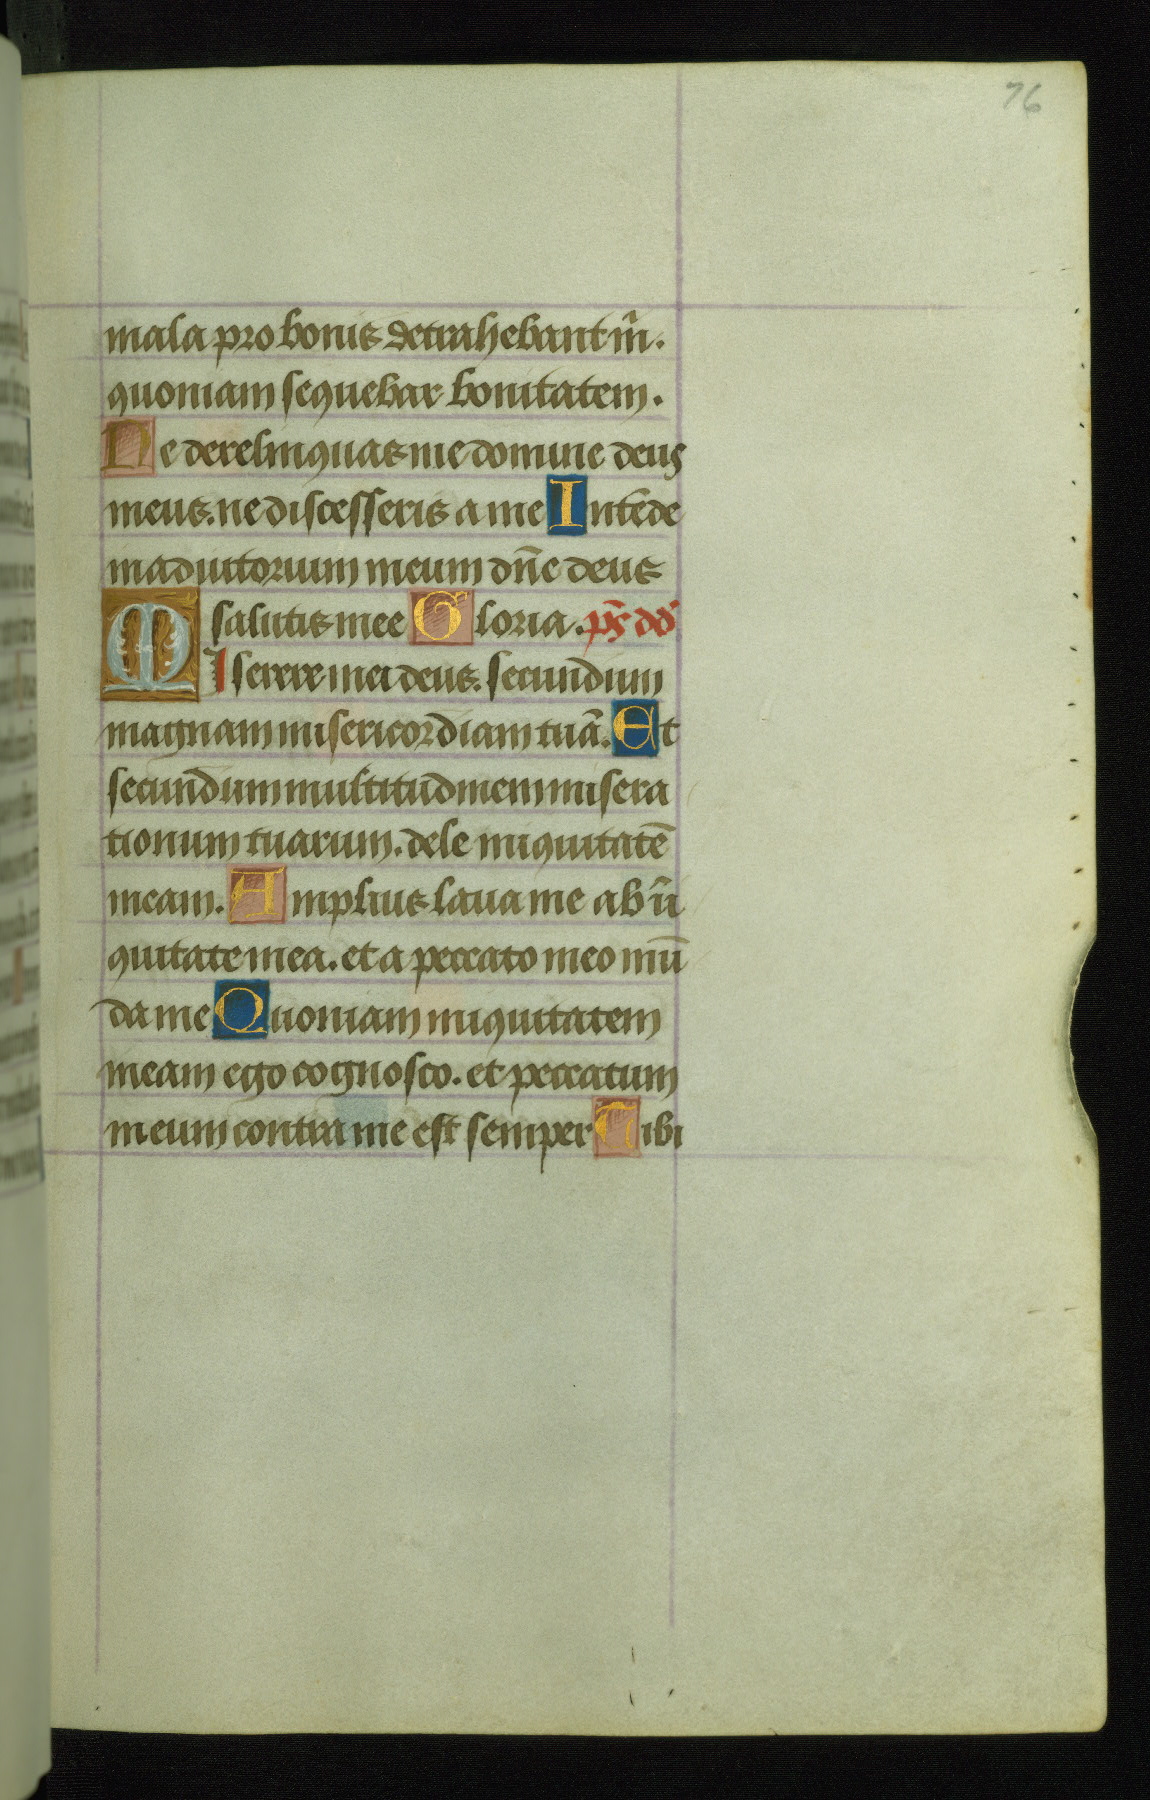 76
mala pro bonis detrahebant m̃.
quoniam sequebar bonitatem.
Ne derelinquas me domine deus
meus. ne discesseris a me Intẽde
in adiutorium meum dñe deus
salutis mee Gloria. ps̃ dd̃
MIserere mei deus. secundum
magnam misericordiam tuã. Et
secundum multitudinem misera
tionum tuarum. dele iniquitatẽ
meam. Amplius laua me ab ini
quitate mea. et a peccato meo mũ
da me Quoniam iniquitatem
meam ego cognosco. et peccatum
meum contra me est semper Tibi